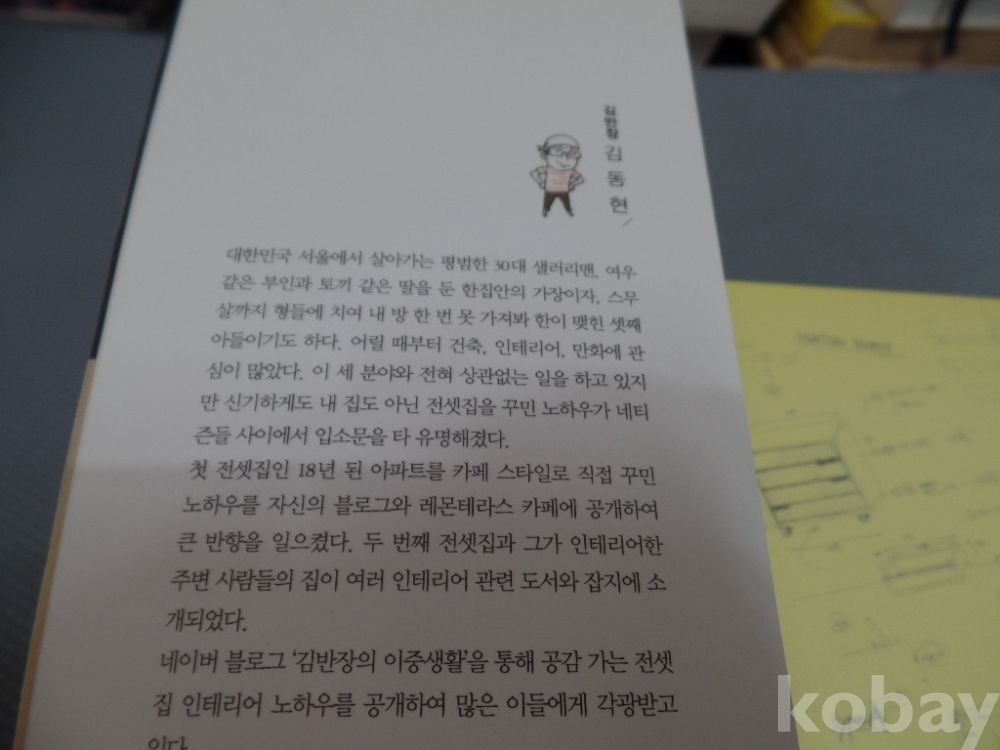 김반장 김동현
대한민국 서울에서 살아가는 평범한 30대 샐러리맨, 여우
같은 부인과 토끼 같은 딸을 둔 한집안의 가장이자, 스무
살까지 형들에 치여 내 방 한 번 못 가져봐 한이 맺힌 셋째
아들이기도 하다. 어릴 때부터 건축, 인테리어, 만화에 관
심이 많았다. 이 세 분야와 전혀 상관없는 일을 하고 있지
만 신기하게도 내 집도 아닌 전셋집을 꾸민 노하우가 네티
즌들 사이에서 입소문을 타 유명해졌다.
첫 전셋집인 18년 된 아파트를 카페 스타일로 직접 꾸민
노하우를 자신의 블로그와 레몬테라스 카페에 공개하여
큰 반향을 일으켰다. 두 번째 전셋집과 그가 인테리어한
주변 사람들의 집이 여러 인테리어 관련 도서와 잡지에 소
개되었다.
네이버 블로그 '김반장의 이중생활'을 통해 공감 가는 전셋
집 인테리어 노하우를 공개하여 많은 이들에게 각광받고
있다.
kobay